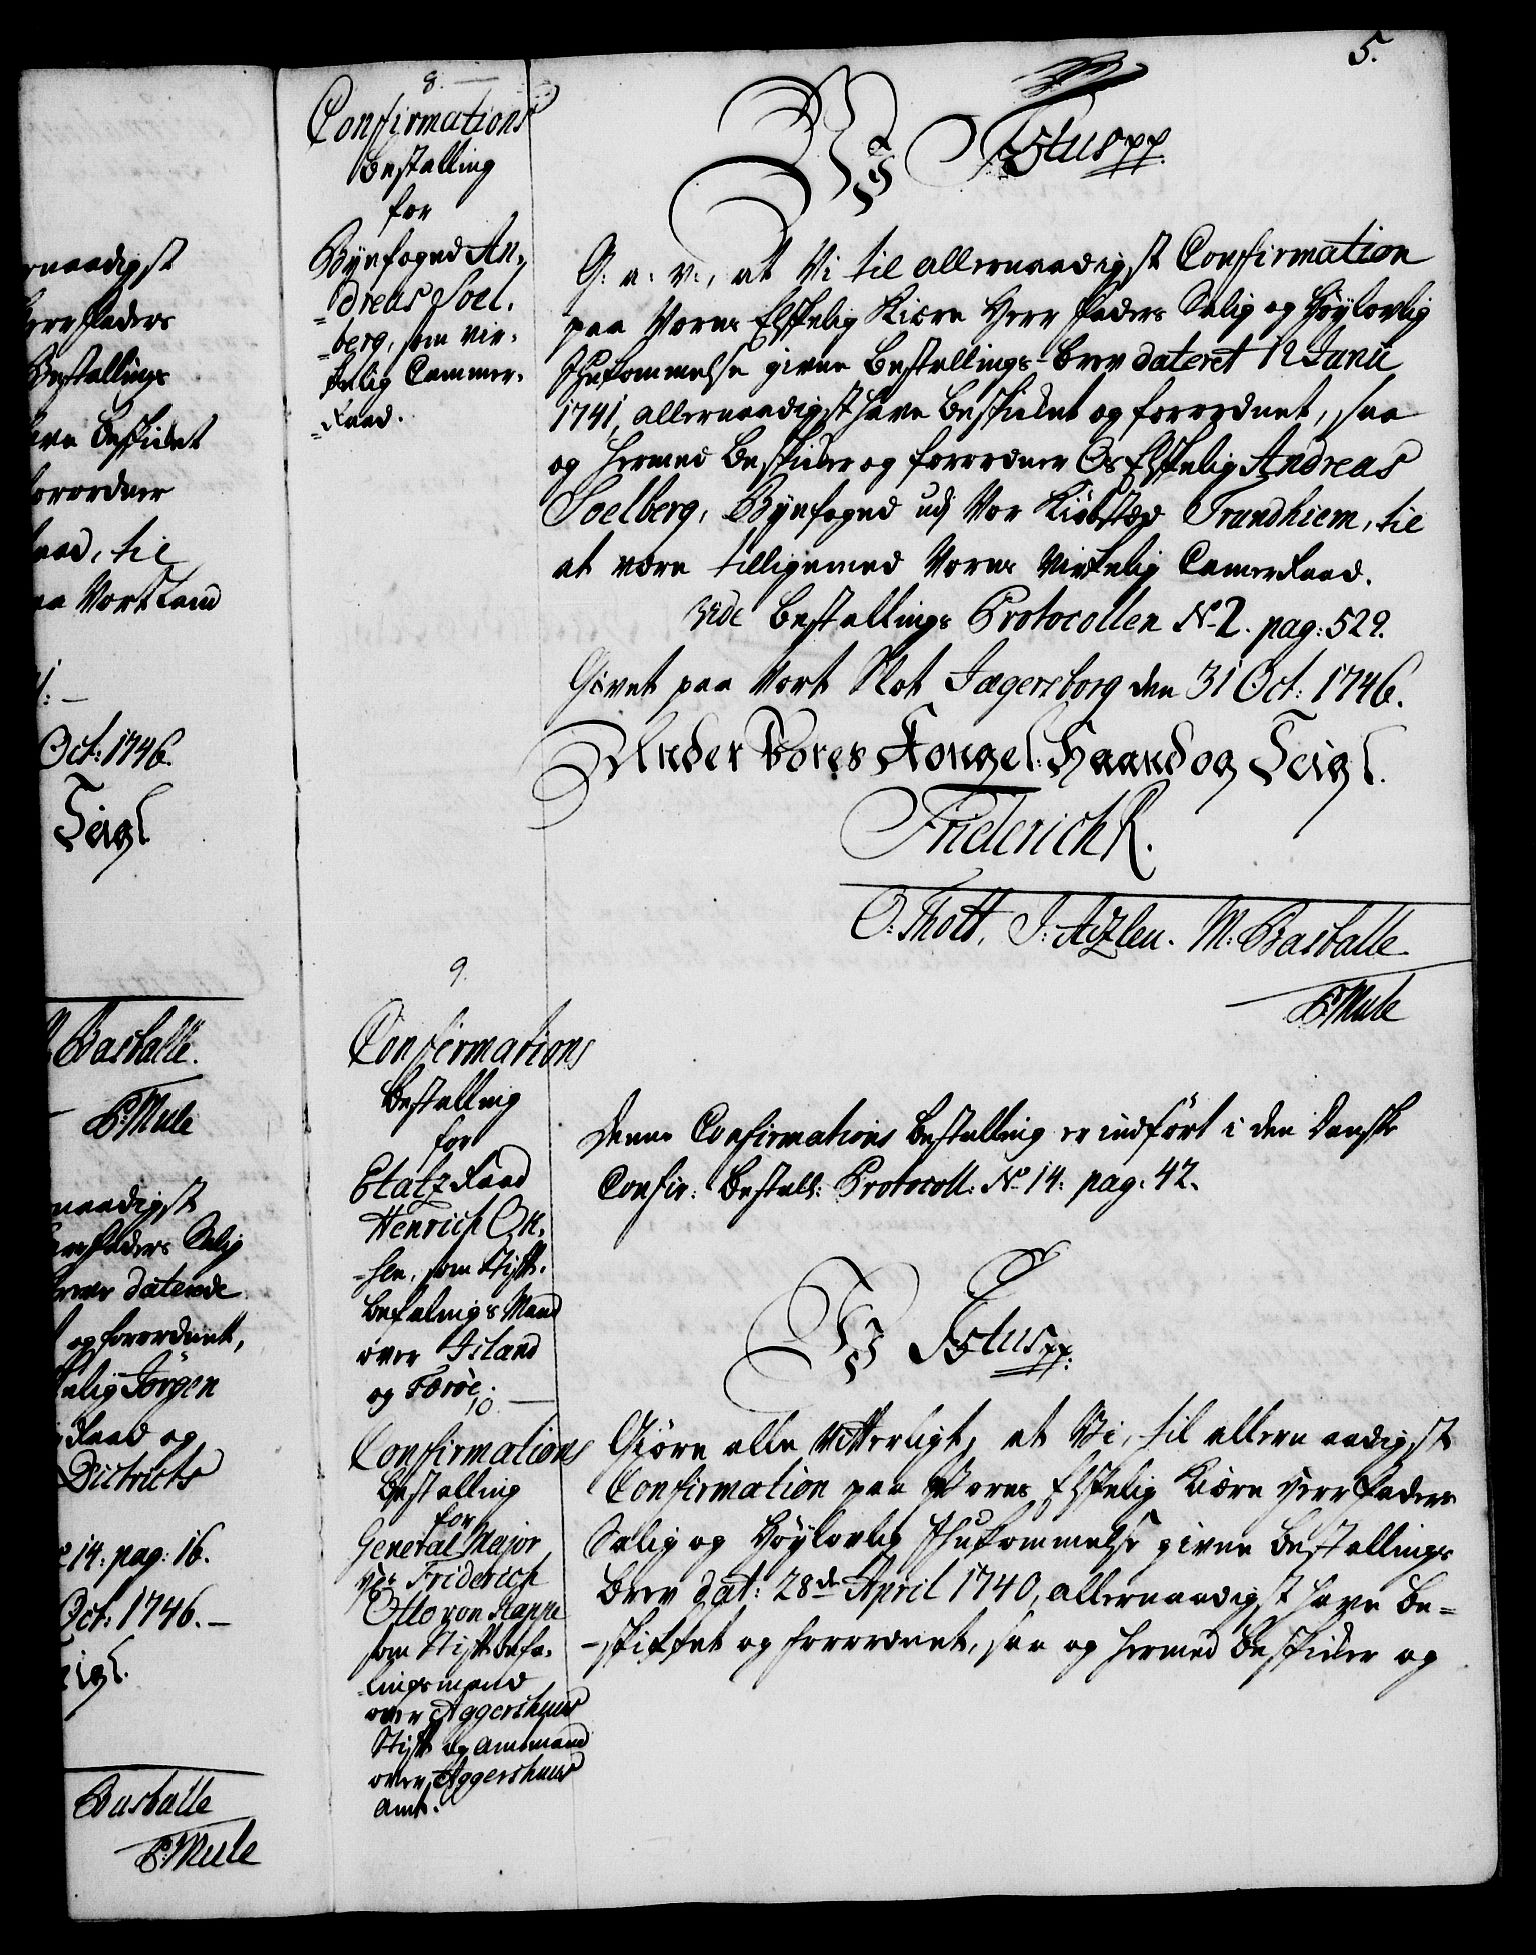 5.
rnaadigst
Herr Faders
Bestallings
have Beskicket
forordner
Raad, til
paa Vort Land
Oct: 1746.
Seigl
Basballe.
P: Mule
naadigst
Herr Faders Salig
Brever daterede
og forordnet,
Elskelig Jörgen
Raad og
Districts
14: pag: 16.
Oct: 1746. —
Seigl.
Basballe
P: Mule
8.
Confirmations
Bestalling
for
Byefoged An-
=dreas Soel-
=berg, som vir-
kelig Cammer-
=Raad.
Vi F 5tus pp.
G: a: v:, at Vi til allernaadigst Confirmation
paa Vores Elskelig Kiære Herr Faders Salig og Höylovlig
Ihukommelse givne Bestallings-Brev dateret 12 Janii
1741, allernaadigst have Beskicket og forordnet, saa
og hermed Beskicker og forordner Os Elskelig Andreas
Soelberg, Byefoged udj Vor Kiöbstæd Trundhiem, til
at være tilligemed Vores Virkelig Camerraad.
vide Bestallings Protocollen No 2. pag: 529.
Givet paa Vort Slot Jægersborg den 31 Oct: 1746.
Under Vores Kongel: Haand og Seigl.
Friderich R.
O: Thott. J: Atzlen. M: Basballe
P: Mule
9.
Confirmations
Bestalling
for
Etatz Raad
Henrich Ok-
=sen, som Stift-
Befalings Mand
over Island
og Færöe.
Denne Confirmations Bestalling er indfört i den Danske
Confir: Bestall: Protocoll: No 14: pag: 42.
10.
Confirmations
Bestalling
for
General Major
Friderich
Otto von Rappe
som Stiftbefa-
lingsmand
over Aggershuus
Stift og Amtmand
over Aggershuus
Amt.
Vi F 5tus pp:
Giöre alle Vitterligt, at Vi, til allernaadigst
Confirmation paa Vores Elskelig Kiære Herr Faders
Salig og Höylovlig Ihukommelse givne Bestallings
Brev dat: 28de April 1740, allernaadigst have Be=
=skikket og forordnet, saa og hermed Beskicker og